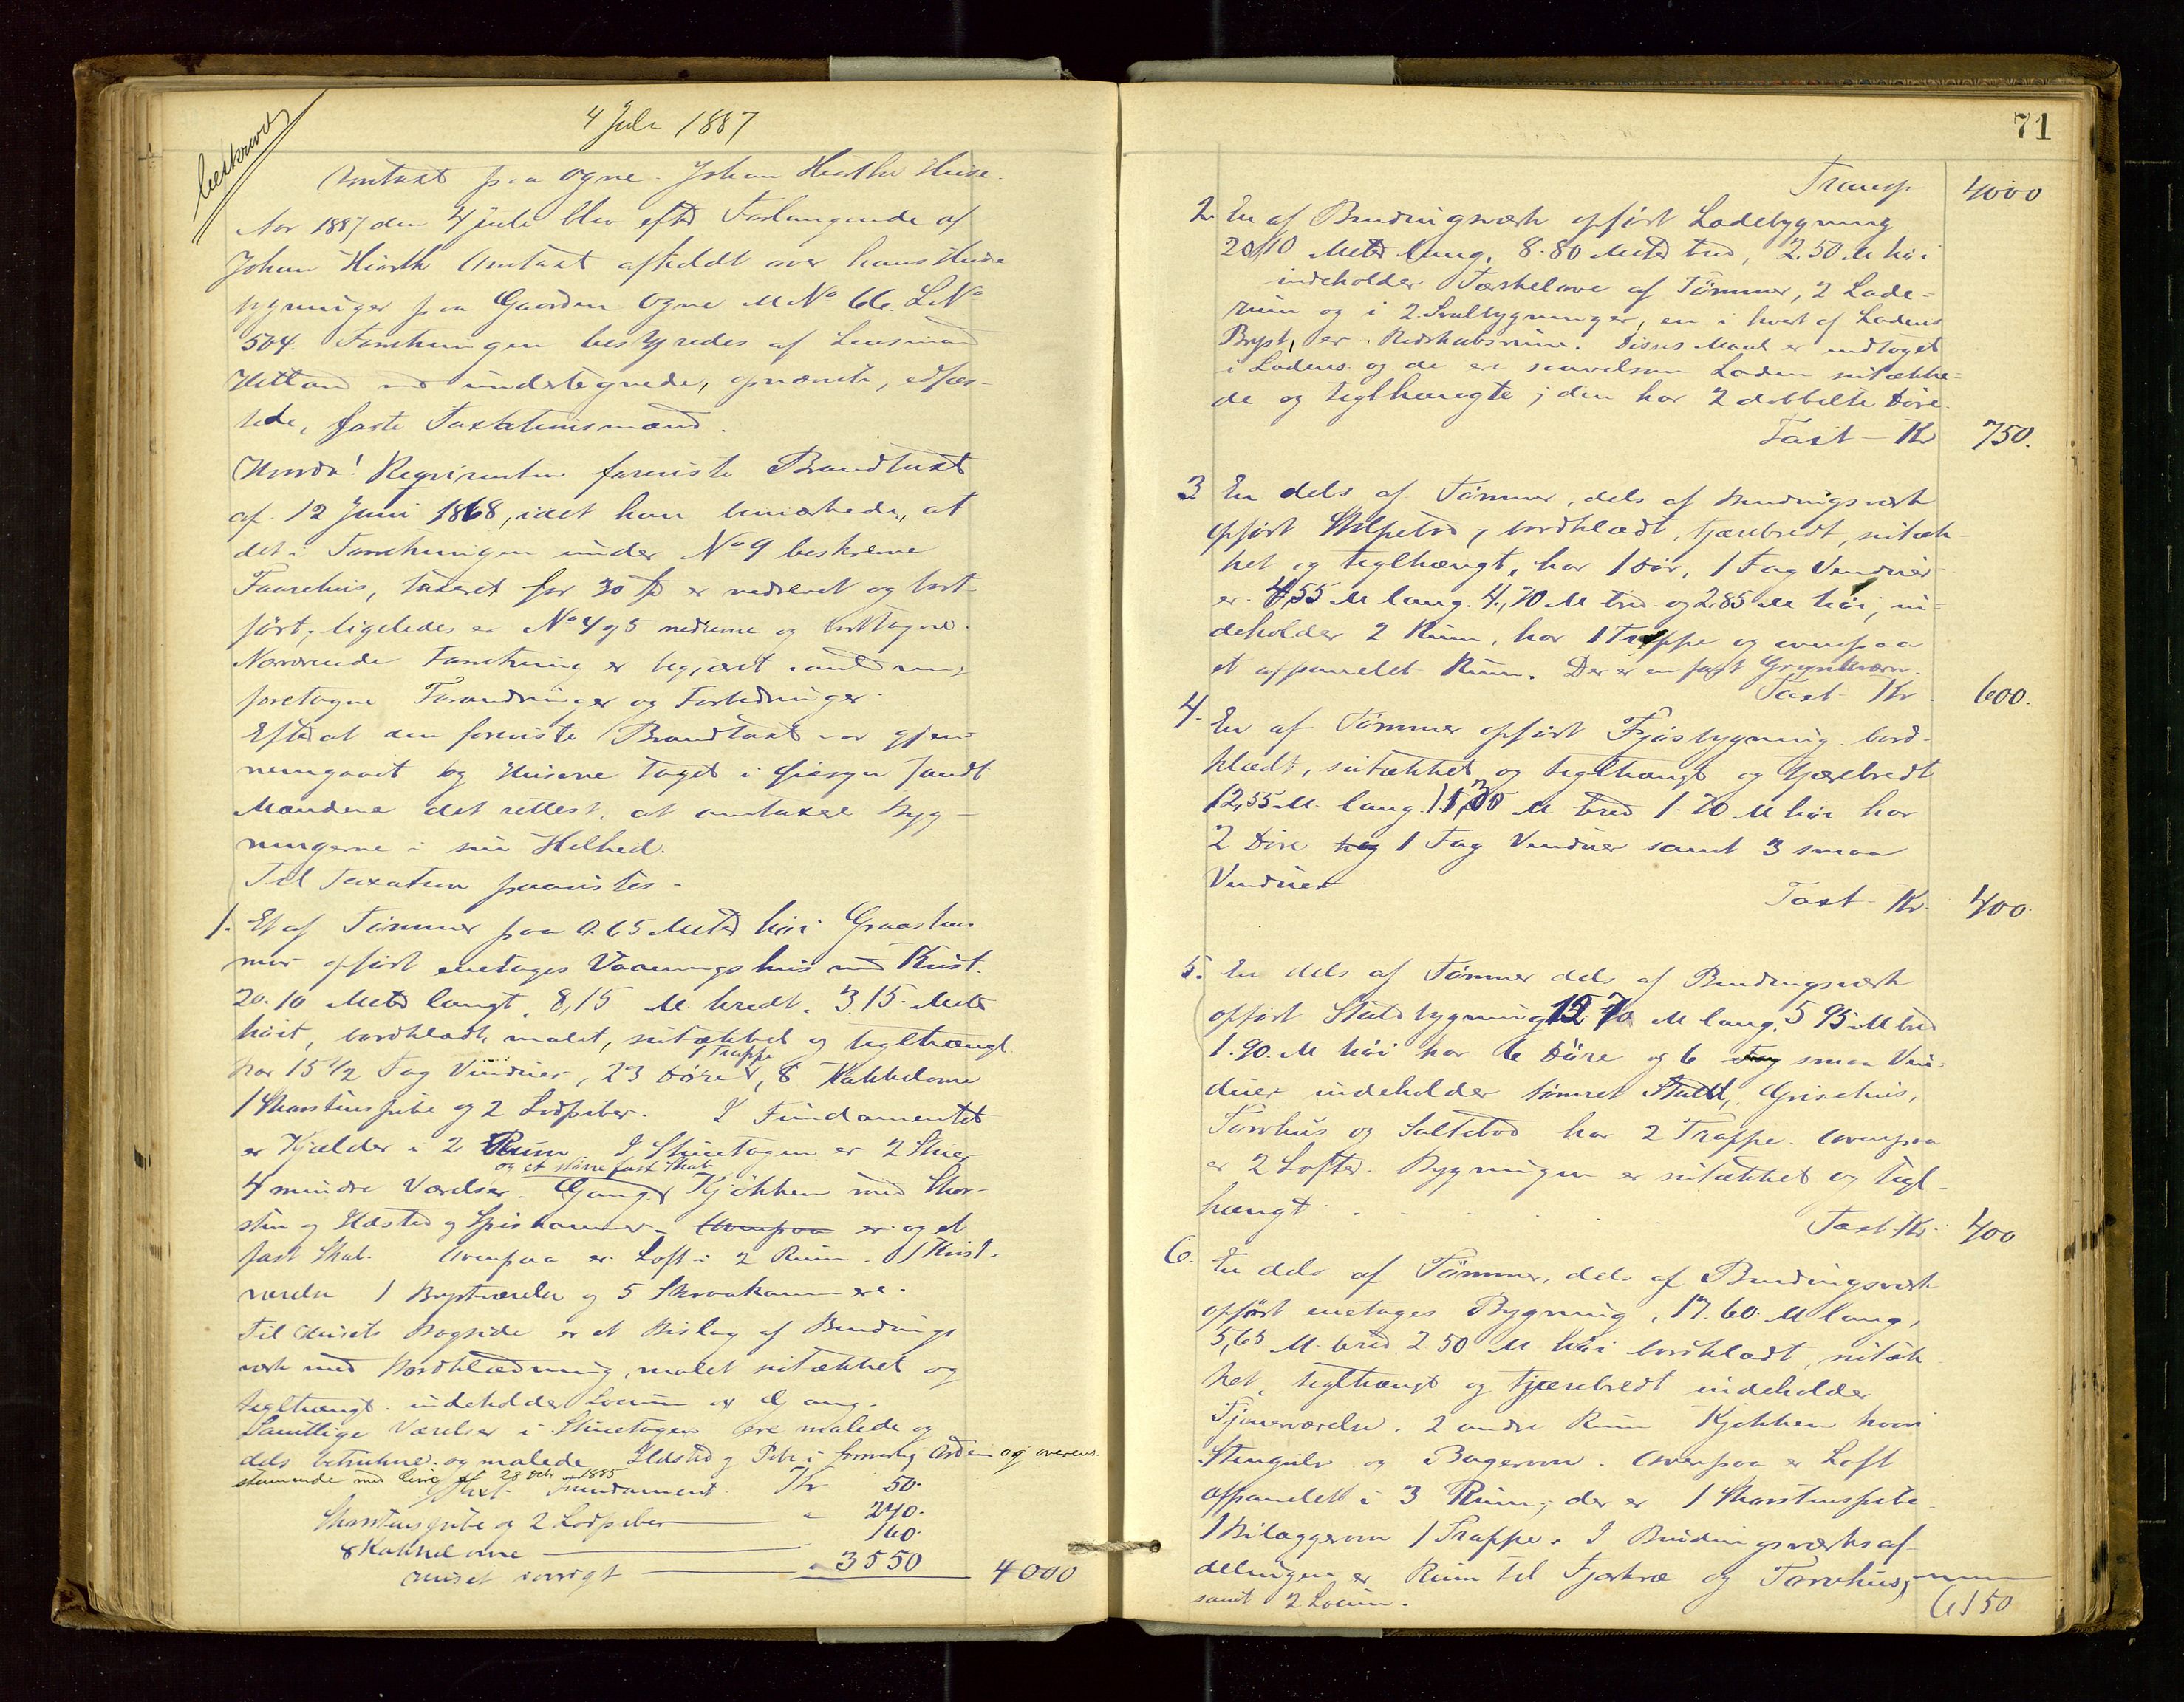 beskrevet
4 Juli 1887
Omtaxt paa Ogne. Johan Hiorths Huse.
Aar 1887 den 4 Juli blev efter Forlangende af
Johan Hiorth Omtaxt afholdt over hans Huse
bygninger paa Gaarden Ogne M No 66. L No
504. Forretningen bestyredes af Lensmand
Hetland med undertegnede, opnævnte, edfæs-
tede, faste Taxationsmænd.
Hvorda! Reqvirenten foreviste Brandtaxt
af 12 Juni 1868, idet han bemærkede, at
det i Forretningen under No 9 beskrevne
Faarehus, taxeret for 30 Spd er nedrevet og bort-
ført, ligeledes er No 4 og 5 nedrevne og borttagne.
Nærværende Forretning er begjært
foretagne Forandringer og Forbedringer.
Efterat den foreviste Brandtaxt var gjen-
nemgaaet og Husene taget i Øiesyn fandt
Mændene det rettest, at omtaxere Byg-
ningerne i sin Helhed.
Til Taxation paavistes -
1. Et af Tømmer paa 0.65 Meter høi Graastens
mur opført enetages Vaaningshus med Kvist.
20.10 Meter langt, 8,15 M. bredt. 3.15. Meter
høit, bordklædt, malet, sutækket og teglhængt
1 Trappe
har 15 1/2 Fag Vinduer, 23 Døre, 8 Kakkelovne
1 Skorstenspibe og 2 Lodpiber. I Fundamentet
er Kjælder i 2 Rum I Stueetagen er 2 Stuer
og et større fast Skab
4 mindre Værelser. Gang Kjøkken med Skor-
sten og Ildsted og Spiskammer. Ovenpaa er og et
fast Skab. Ovenpaa er Loft i 2 Rum. 1 Kvist-
værelse 1 Brystværelse og 5 Skraakammere.
Til Husets Bagside er et Bislag af Bindings
værk med Bordklædning, malet sutækket og
teglhængt. indeholder Locum og Gang.
Samtlige Værelser i Stueetagen ere malede og
dels betrukne og malede Ildsted og Pibe i forsvarlig Orden og overens-
stemmende med Lov af 28 Octr 1885
Taxt. Fundament Kr 50.
Skorstenspibe og 2 Lodpiber " 240.
8 Kakkelovne " 160.
Huset iøvrigt " 3550 4000
71
Transp. 4000
2. En af Bindingsværk opført Ladebygning
20,10 Meter lang, 8.80 Meter bred, 2.50 M høi
indeholder Tærskelove af Tømmer, 2 Lade-
rum og i 2 Svalbygninger, en i hvert af Ladens
Bryst, er Redskabsrum. Disses Maal er indtaget
i Ladens og de ere saavelsom Laden sutække-
de og teglhængte; den har 2 dobbelte Døre.
Taxt - Kr 750.
3 En dels af Tømmer, dels af Bindingsværk
opført Stolpebod, bordklædt, tjærebredt, sutæk-
ket og teglhængt, har 1 Dør, 1 Fag Vinduer
er 4,55 M lang. 4,70 M bred. og 2,85 M høi, in-
deholder 2 Rum, har 1 Trappe og ovenpaa
et afpanelet Rum. Der er en fast Grynkværn.
Taxt Kr. 600.
4. En af Tømmer opført Fjøsbygning bord-
klædt, sutækket og teglhængt og tjærebredt
12,55 M. lang. M bred 1.70 M høi har
2 Døre 1 Fag Vinduer samt 3 smaa
Vinduer
Taxt - Kr. 400.
5. En dels af Tømmer dels af Bindingsværk
opført Staldbygning M lang. 5 95 M bred
1.90. M høi har 6 Døre og 6 Fag smaa Vin-
duer indeholder tømret Stald, Grisehus,
Torvhus og Saltebod har 2 Trappe. Ovenpaa
er 2 Lofter. Bygningen er sutækket og tegl-
hængt
Taxt Kr. 400
6. En dels af Tømmer, dels af Bindingsværk
opført enetages Bygning, 17.60 M lang,
5,65 M. bred 2 50 M høi bordklædt, sutæk
ket, teglhængt og tjærebredt indeholder
Tjenerværelse, 2 andre Rum Kjøkken hvori
Stengulv og Bagerovn. Ovenpaa er Loft
afpanelet i 3 Rum, der er 1 Skorstenspibe
1 Bilæggerovn 1 Trappe. I Bindingsværksaf-
delingen er Rum til Fjærkræ og Torvhus,
samt 2 Locum.
6150